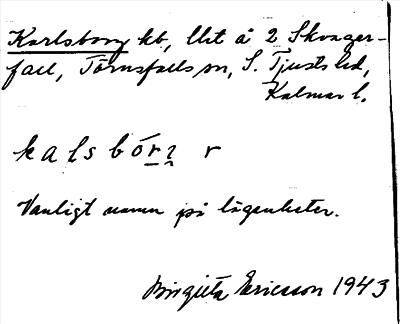 Karlsborg kb, llt å 2 Skvager-
fall, Törnsfalls sn, S. Tjusts hd,
Kalmar l.
kalsbórɂ r
Vanligt namn på lägenheter.
Birgitta Ericsson 1943